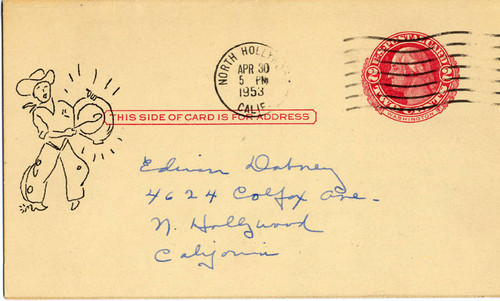 NORTH HOLLY
APR 30
5 PM
1953
CALIF.
U.S. POSTAL CARD
2 CENTS 2
WASHINGTON
THIS SIDE OF CARD IS FOR ADDRESS
Edwin Dabney
4624 Colfox Ave.
N. Hollywood
California